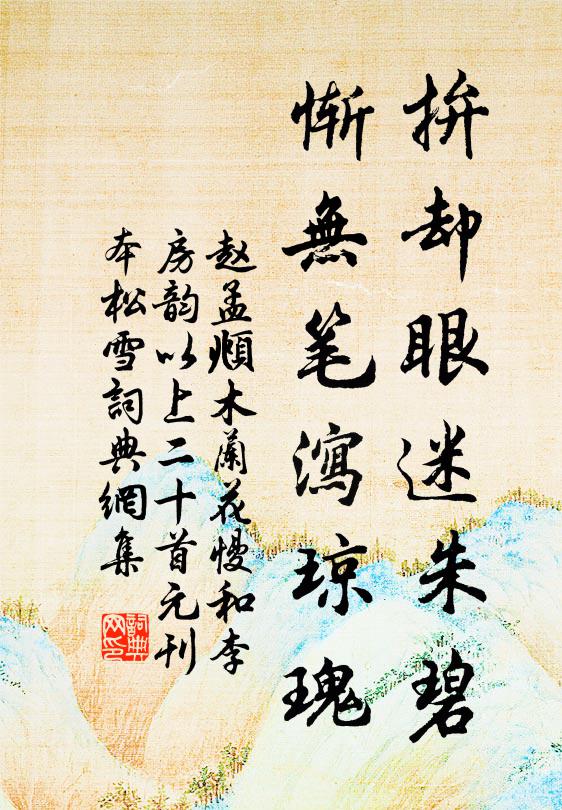 拚却眼迷朱碧
惭無笔瀉琼瑰
赵孟頫木蘭花慢和李
房韵以上二十首元刊
本松雪詞典網集
詞典网印